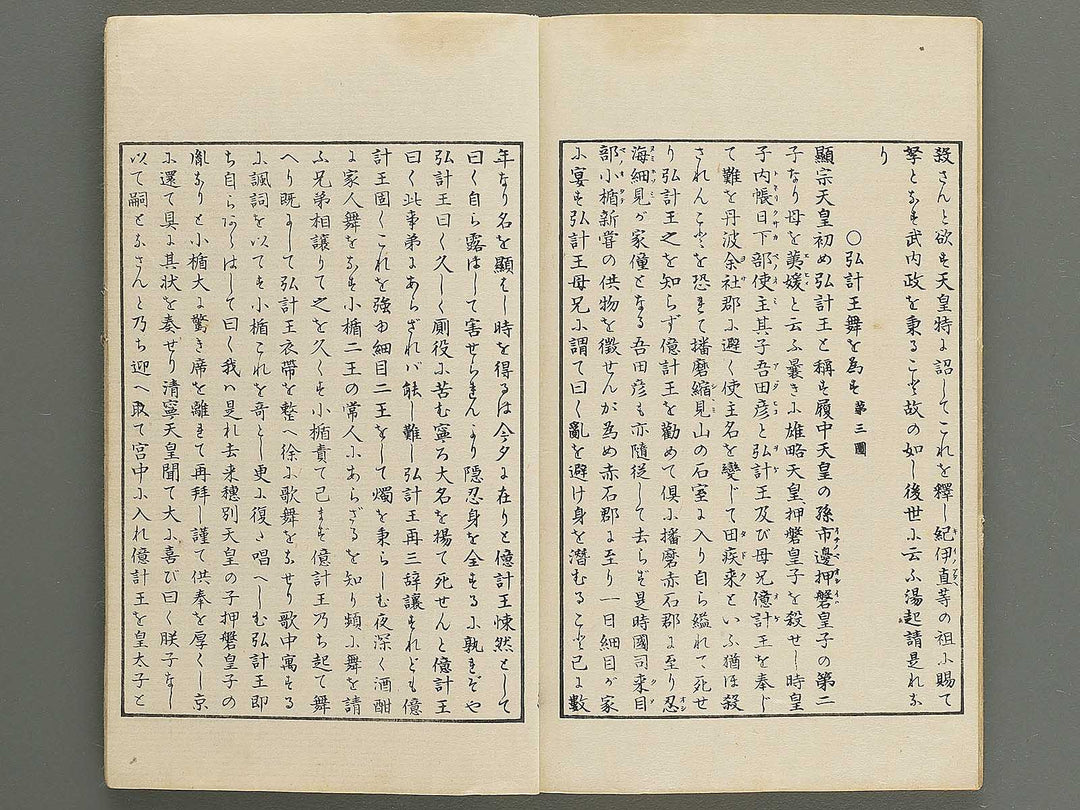 殺さんと欲す天皇特に詔してこれを釋し紀伊直等の祖に賜て
孥となす武内政を秉ること故の如し後世に云ふ湯起請是れな
り
○弘計王舞を為す 第三圖
顯宗天皇初め弘計王と稱す履中天皇の孫市邊押磐皇子の第二
子なり母を荑媛と云ふ曩きに雄略天皇押磐皇子を殺せし時皇
子内帳日下部使主其子吾田彦と弘計王及び母兄億計王を奉じ
て難を丹波余社郡に避く使主名を變じて田疾來といふ猶ほ殺
されんことを恐れて播磨縮見山の石室に入り自ら縊れて死せ
り弘計王之を知らず億計王を勸めて倶に播磨赤石郡に至り忍
海細見が家僮となる吾田彦も亦隨従して去らず是時國司來目
部小楯新甞の供物を徴せんが為め赤石郡に至り一日細目が家
に宴す弘計王母兄に謂て曰く亂を避け身を潜むること已に數
年なり名を顯はし時を得るは今夕に在りと億計王悚然として
曰く自ら露はして害せられんより隠忍身を全するに孰れぞや
弘計王曰く久しく厠役に苦む寧ろ大名を揚て死せんと億計王
曰く此事弟にあらざれバ能し難し弘計王再三辞讓すれども億
計王固くこれを強ゆ細目二王をして燭を秉らしむ夜深く酒酣
に家人舞をなす小楯二王の常人にあらざるを知り頻に舞を請
ふ兄弟相讓りて之を久くす小楯責て已まず億計王乃ち起て舞
へり既にして弘計王衣帶を整へ徐に歌舞をなせり歌中寓する
に諷詞を以てす小楯これを奇とし更に復た唱へしむ弘計王即
ち自らあらはして曰く我ハ是れ去来穂別天皇の子押磐皇子の
胤なりと小楯大に驚き席を離れて再拜し謹て供奉を厚くし京
に還て具に其状を奏せり清寧天皇聞て大に喜び曰く朕子なし
以て嗣となさんと乃ち迎へ取て宮中に入れ億計王を皇太子と